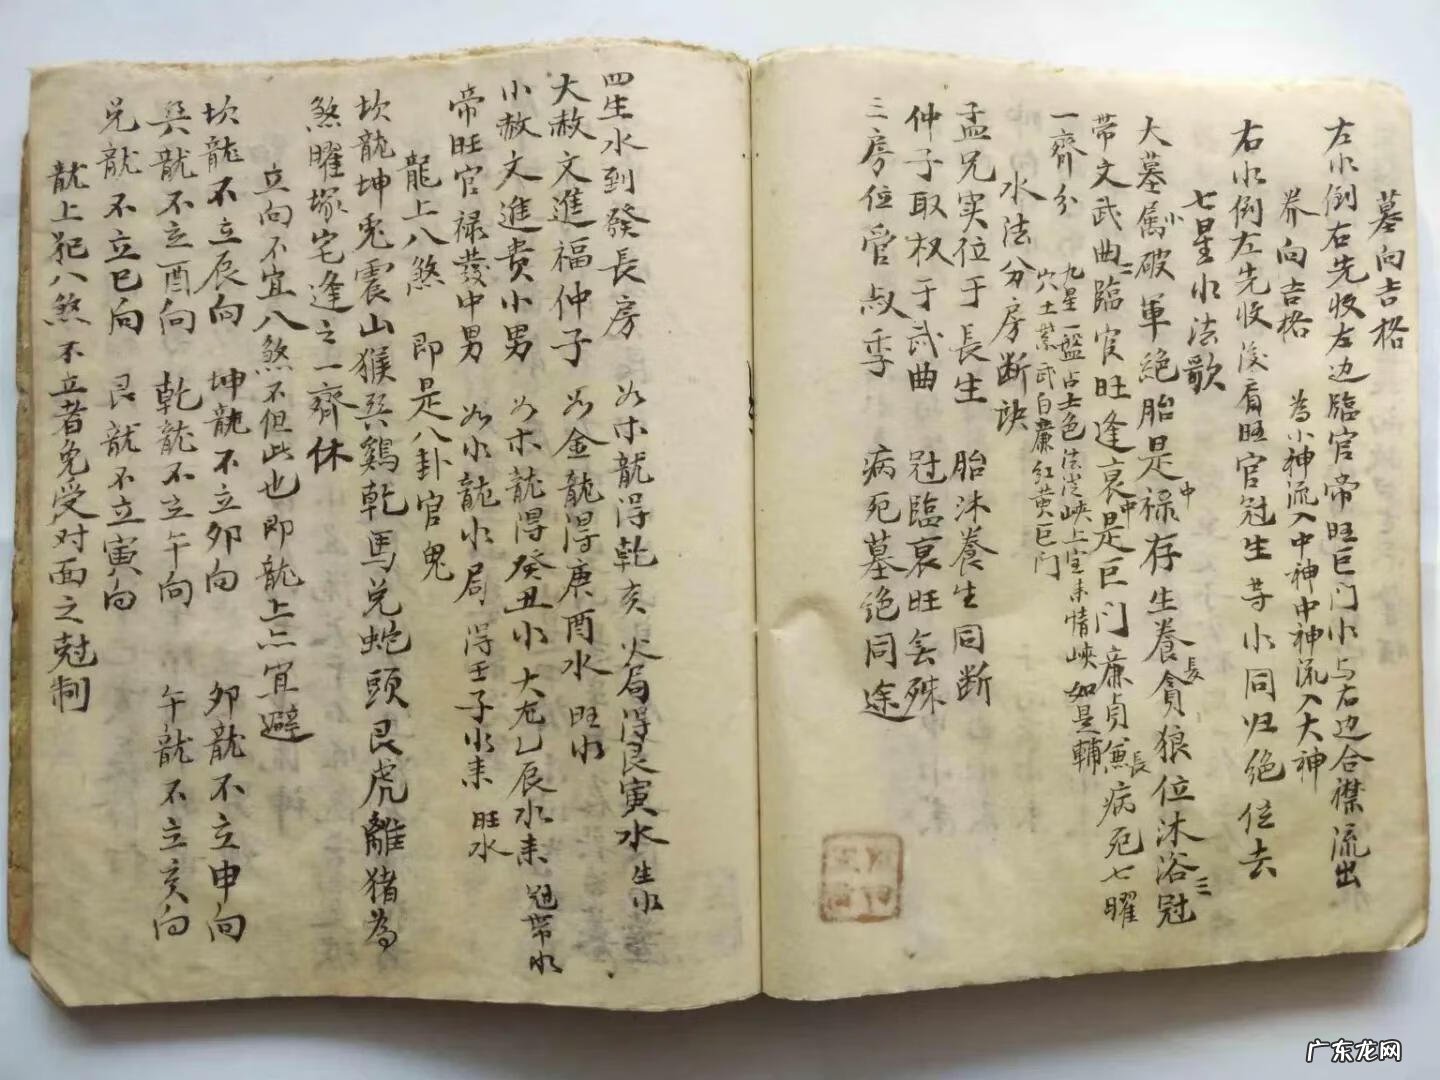 墓向吉格
左水倒右先收左边臨官帝旺巨门水与右边合襟流出
养向吉格 為小神流入中神中神流入大神
右水倒左先收後看旺官冠生等水同归绝位去
七星水法歌
大墓属小破軍绝胎是禄中存生養長貪狼位沐浴三冠
带文武曲二臨官旺逢衰是中巨门廉貞兼長病死七曜
一齊分 九星一盤占土色法從峡上宝来情峡如是輔
穴土紫武白廉红黄巨门
水法分房断訣
孟兄实位于長生 胎沐養生同断
仲子取权于武曲 冠臨衰旺無殊
三房位管叔季 病死墓绝同途
四生水到發長房 如木龍得乾亥火局得艮寅水生水
大赦文進福仲子 如金龍得庚酉水 旺水
小赦文進贵小男 如木龍得癸丑水大尤乙辰水来 冠带水
帝旺官禄發中男 如水龍水局得壬子水来 旺水
龍上八煞 即是八卦官鬼
坎龍坤兎震山猴巽鷄乾馬兑蛇頭艮虎離猪為
煞曜塚宅逢之一齊休
立向不宜八煞不但此也即龍上亦宜避
坎龍不立辰向 坤龍不立卯向 卯龍不立申向
巽龍不立酉向 乾龍不立午向 午龍不立亥向
兑龍不立巳向 艮龍不立寅向
龍上犯八煞不立者免受对面之尅制
广东龙网